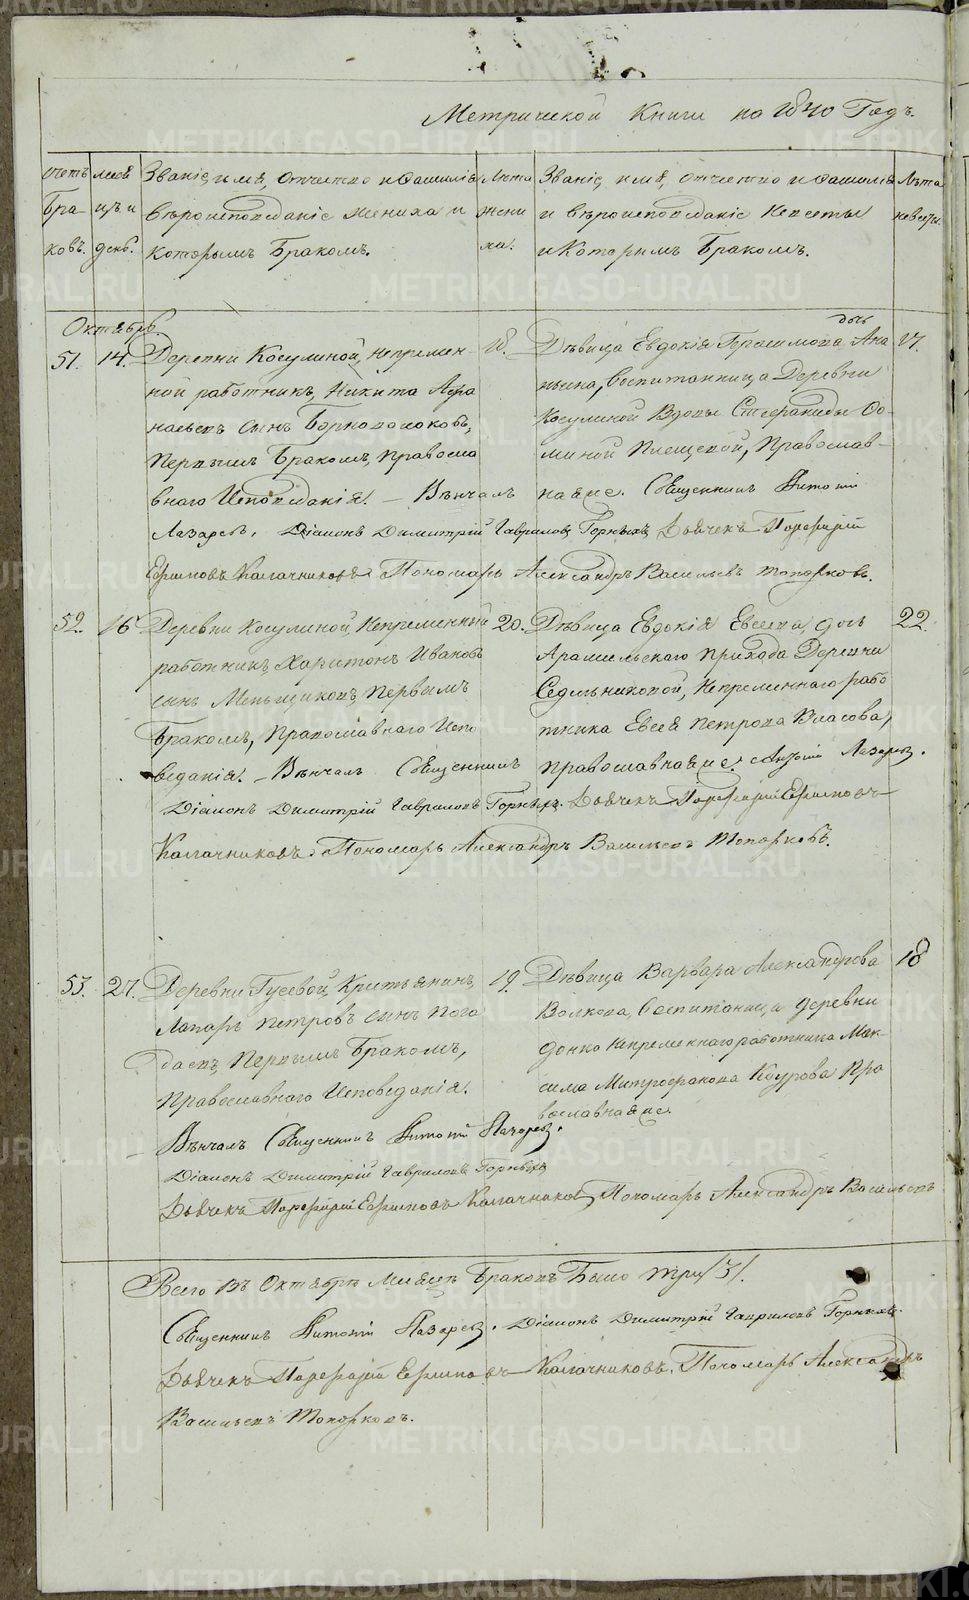 Метрической Книги на 1840 Годъ.
счетъ Браковъ. месяцъ и день.
Званіе, имя, отчество и Фамилія
вѣроисповѣданіе жениха и
которымъ Бракомъ.
Лѣта жениха.
Званіе, имя, отчество и Фамилія
и вѣроисповѣданіе невесты
и которымъ Бракомъ.
Лѣта невесты.
Октябрь.
51. 14. Деревни Косулиной, Непремен-
ной работникъ, Никита Афа
насьевъ сынъ Черноволоковъ,
Первымъ Бракомъ, Правосла
внаго Исповѣданія. – Вѣнчалъ
18. Дѣвица Евдокія Герасимова дочь Ана
ньина, воспитанница Деревни
Косулиной Вдовы Стефаниды Ѳо-
миной Плещевой, Православ-
ная же. Священникъ Антоній
17.
Лазаревъ. Діаконъ Димитрій Гавриловъ Горныхъ Дьячекъ Порфирій
Ефимовъ Калачниковъ Пономарь Александръ Васильевъ Топорковъ.
52. 16 Деревни Косулиной, Непременный
работникъ, Харитонъ Ивановъ
сынъ Меньщиковъ, Первымъ
Бракомъ, Православнаго Испо
веданія. – Вѣнчалъ Священникъ
20. Дѣвица Евдокія Евсеева дочь
Арамильскаго прихода Деревни
Седельниковой, Непременнаго рабо
тника Евсея Петрова Власова,
православная же. Антоній Лазаревъ.
22.
Діаконъ Димитрій Гавриловъ Горныхъ. Дьячекъ Порфирій Ефимовъ
Калачниковъ. Пономарь Александръ Васильевъ Топорковъ.
53. 27. Деревни Гусевой, Крестьянинъ,
Лазарь Петровъ сынъ Пога
даевъ, Первымъ Бракомъ,
Православнаго Исповеданія.
19. Дѣвица Варвара Александрова
Волкова, Воспитаница деревни
непременнаго работника Мак-
сима Митрофанова Коурова Пра
вославная же.
18
– Вѣнчалъ Священникъ Антоній Лазаревъ.
Діаконъ Димитрій Гавриловъ Горныхъ
Дьячекъ Порфирій Ефимовъ Калачниковъ, Пономарь Александръ Васильевъ
Всего въ Октябрѣ Месяцѣ Браковъ Было три /3/.
Священникъ Антоній Лазаревъ. Діаконъ Димитрій Гавриловъ Горныхъ.
Дьячекъ Порфирій Ефимовъ Калачниковъ. Пономарь Александръ
Васильевъ Топорковъ.
METRIKI.GASO-URAL.RU